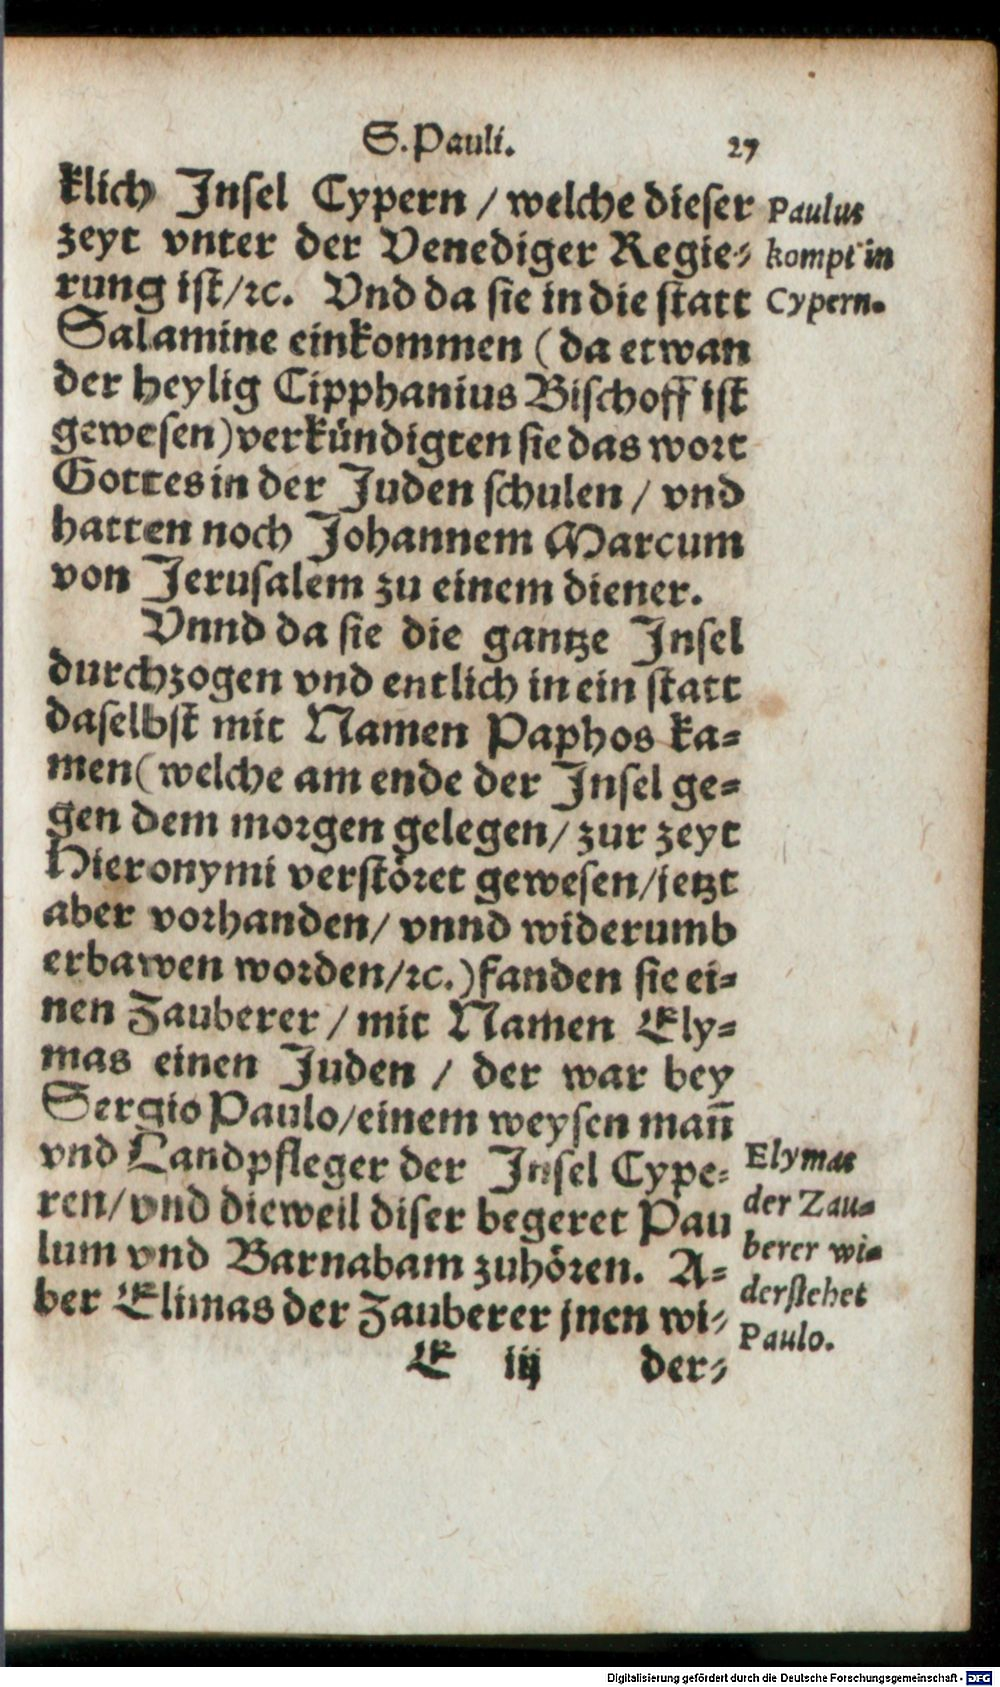 S. Pauli. 27
klich Jnsel Cypern / welche dieser
zeyt vnter der Venediger Regie-
rung ist/ꝛc. Vnd da sie in die statt
Salamine einkommen (da etwan
der heylig Cipphanius Bischoff ist
gewesen) verkündigten sie das wort
Gottes in der Juden schulen / vnd
hatten noch Johannem Marcum
von Jerusalem zu einem diener.
Vnnd da sie die gantze Jnsel
durchzogen vnd entlich in ein statt
daselbst mit Namen Paphos ka-
men (welche am ende der Jnsel ge-
gen dem morgen gelegen/ zur zeyt
Hieronymi verstöret gewesen/jetzt
aber vorhanden/ vnnd widerumb
erbawen worden/ꝛc.) fanden sie ei-
nen Zauberer / mit Namen Ely-
mas einen Juden / der war bey
Sergio Paulo/einem weysen mañ
vnd Landpfleger der Jnsel Cype-
ren/ vnd dieweil diser begeret Pau
lum vnd Barnabam zuhören. A-
ber Elimas der Zauberer jnen wi-
E iij der-
Paulus
kompt in
Cypern.
Elymas
der Zau-
berer wi-
derstehet
Paulo.
Digitalisierung gefördert durch die Deutsche Forschungsgemeinschaft - DFG